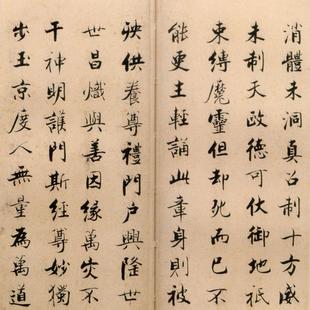 消體未洞真召制十方威
未制天政德可伏御地祇
束縛魔靈但却死而已不
能更生輕誦此章身則被
殃供養尊禮門户興隆世
世昌熾與善因緣萬災不
干神明護門斯經尊妙獨
步玉京度人無量為萬道